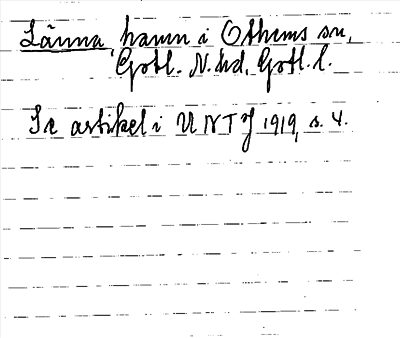 Länna, hamn i Othems sn,
Gotl. N. hd, Gotl. l.
Se artikel i UNT 7/1 1919, s. 4.